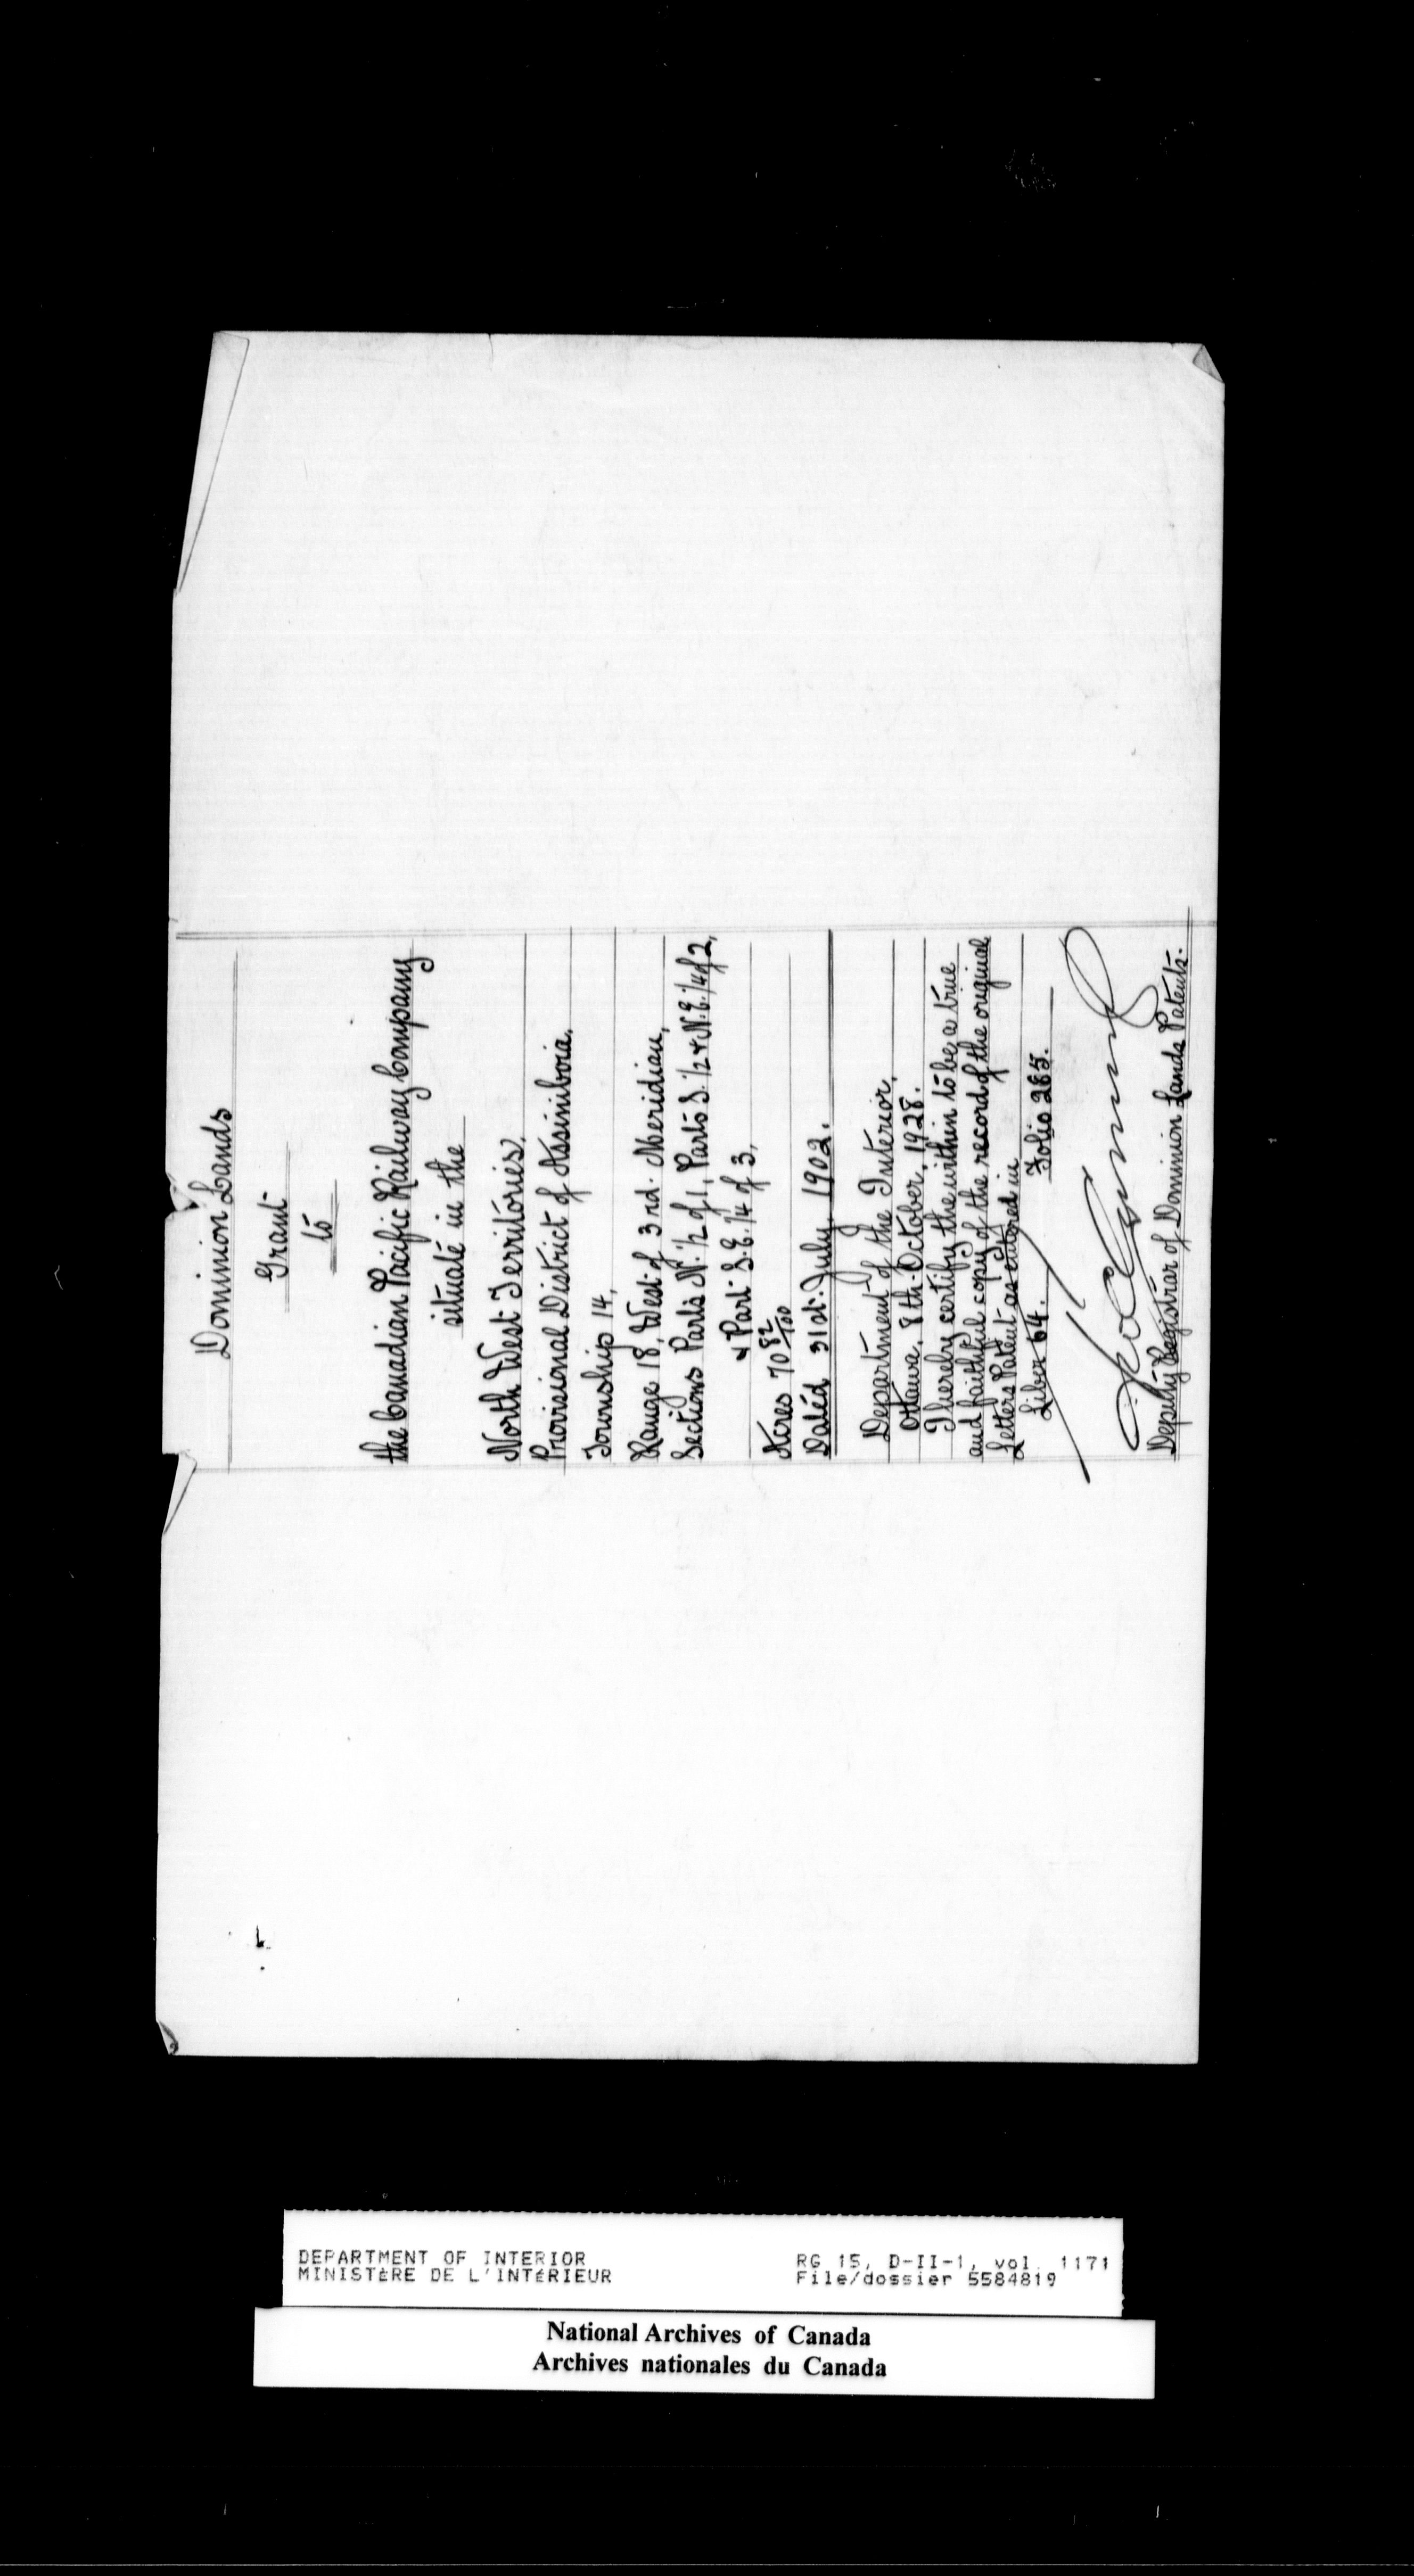 Dominion Lands
Grant
to
the Canadian Pacific Railway Company
situate in the
North West Territories,
Provisional District of Assiniboia,
Township 14,
Range 18, West of 3rd. Meridian,
Sections Parts N. 1/2 of 1, Parts S. 1/2 & N.E. 1/4 of 2,
& Part S.E. 1/4 of 3,
Acres 70 82/100
Dated 31st. July, 1902.
Department of the Interior,
Ottawa, 8th October, 1928.
I hereby certify the within to be a true
and faithful copy of the record of the original
Letters Patent as entered in
Liber 64. Folio 285.
Deputy Registrar of Dominion Lands Patents.
DEPARTMENT OF INTERIOR RG 15, D-II-1, vol. 1171
MINISTÈRE DE L'INTÉRIEUR File/dossier 5584819
National Archives of Canada
Archives nationales du Canada